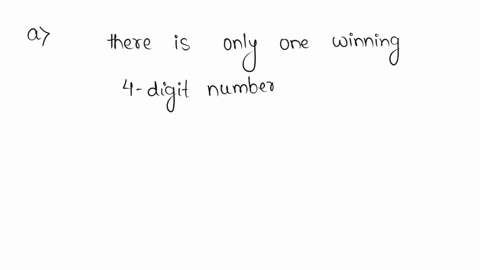 a> there is only one winning
4-digit number